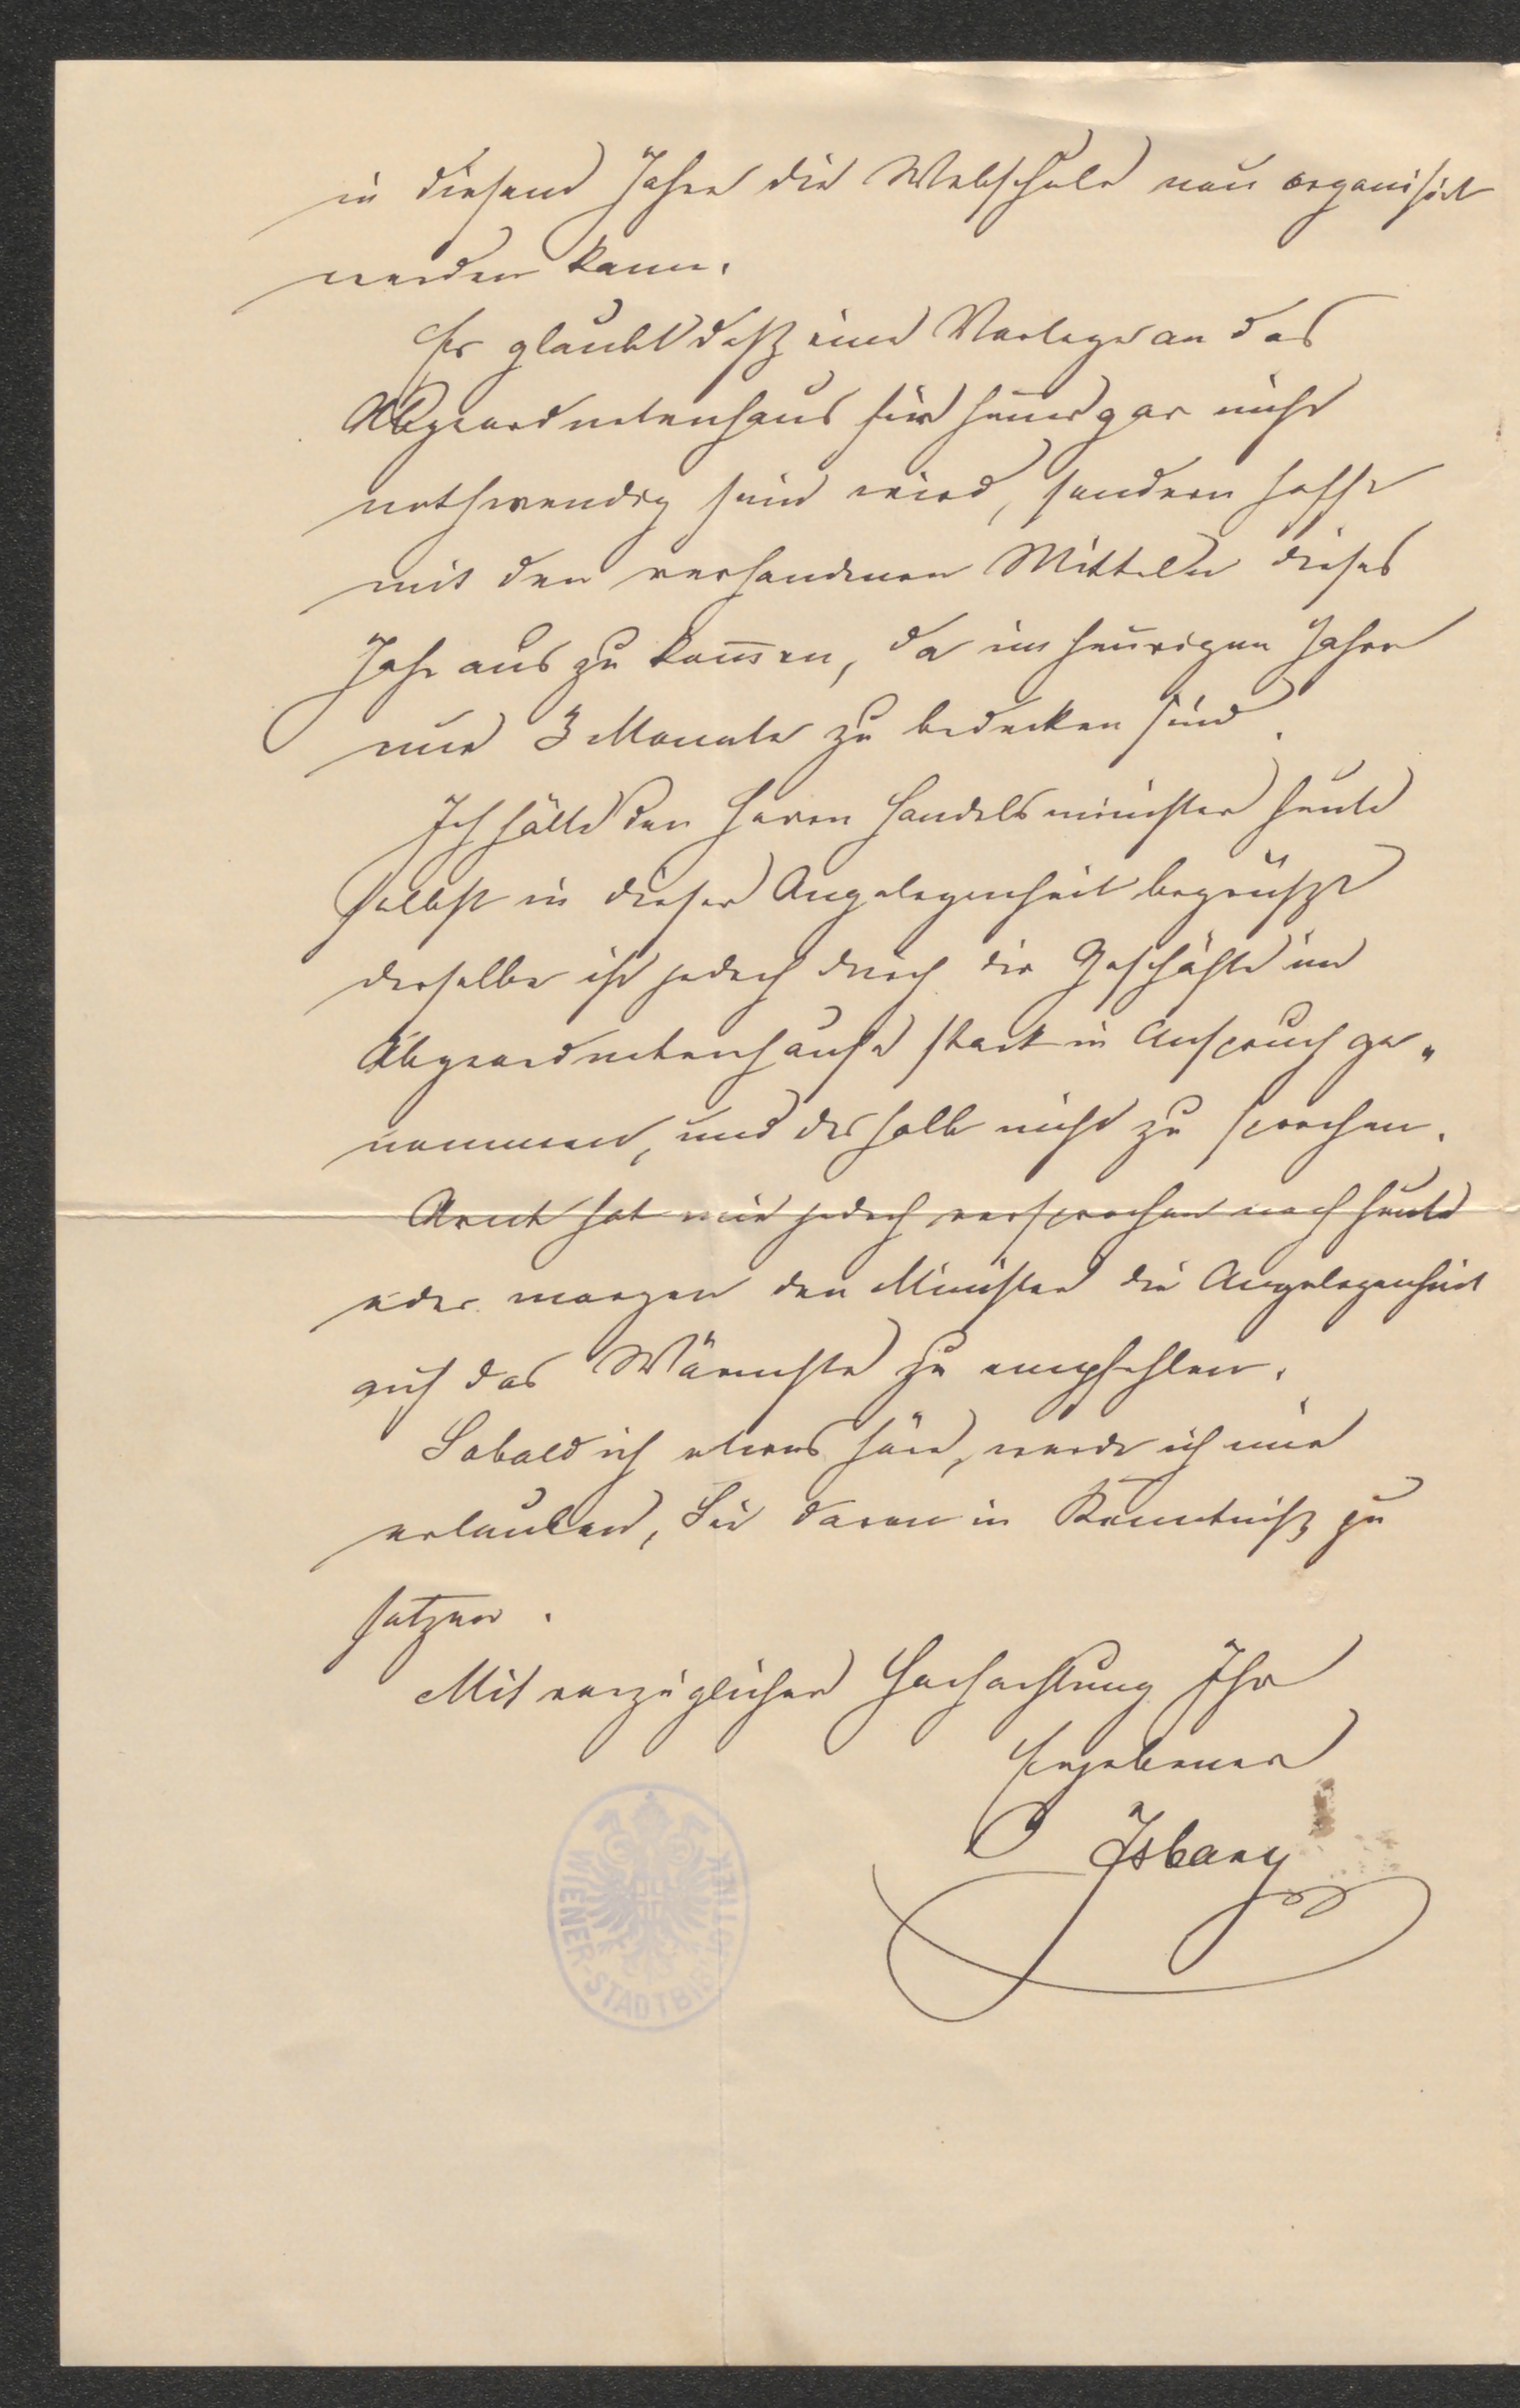 in diesem Jahre die Webschule neu organisirt
werden kann.
Er glaubt daß eine Vorlage an das
Abgeordnetenhaus für heuer gar nicht
nothwendig sein wird, sondern hofft
mit den vorhandenen Mitteln dieses
Jahr aus zu kom̅en, da im heurigen Jahre
nur 3 Monate zu bedecken sind.
Ich hätte den Herrn Handelsminister heute
selbst in dieser Angelegenheit begrüßt
derselbe ist jedoch durch die Geschäfte im
Abgeordnetenhause stark in Anspruch ge„
nommen, und deshalb nicht zu sprechen.
Arnt hat mir jedoch versprochen noch heute
oder morgen den Minister die Angelegenheit
auf das Wärmste zu empfehlen.
Sobald ich etwas höre, werde ich mir
erlauben, Sie davon in Kenntniß zu
setzen.
Mit vorzüglicher Hochachtung Ihr
Ergebener
Isbary
WIENER STADTBIBLIOTHEK